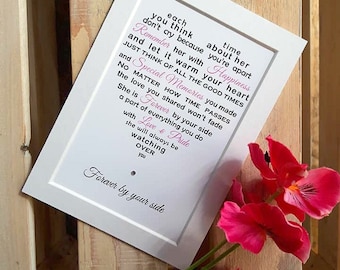 each time
you think about her
don't cry because you're apart
Remember her with Happiness
and let it warm your heart
JUST THINK OF ALL THE GOOD TIMES
and Special Memories you made
NO MATTER HOW TIME PASSES
the love you shared won't fade
She is Forever by your side
a part of everything you do
with Love & Pride
she will always be
watching
OVER
you
Forever by your side